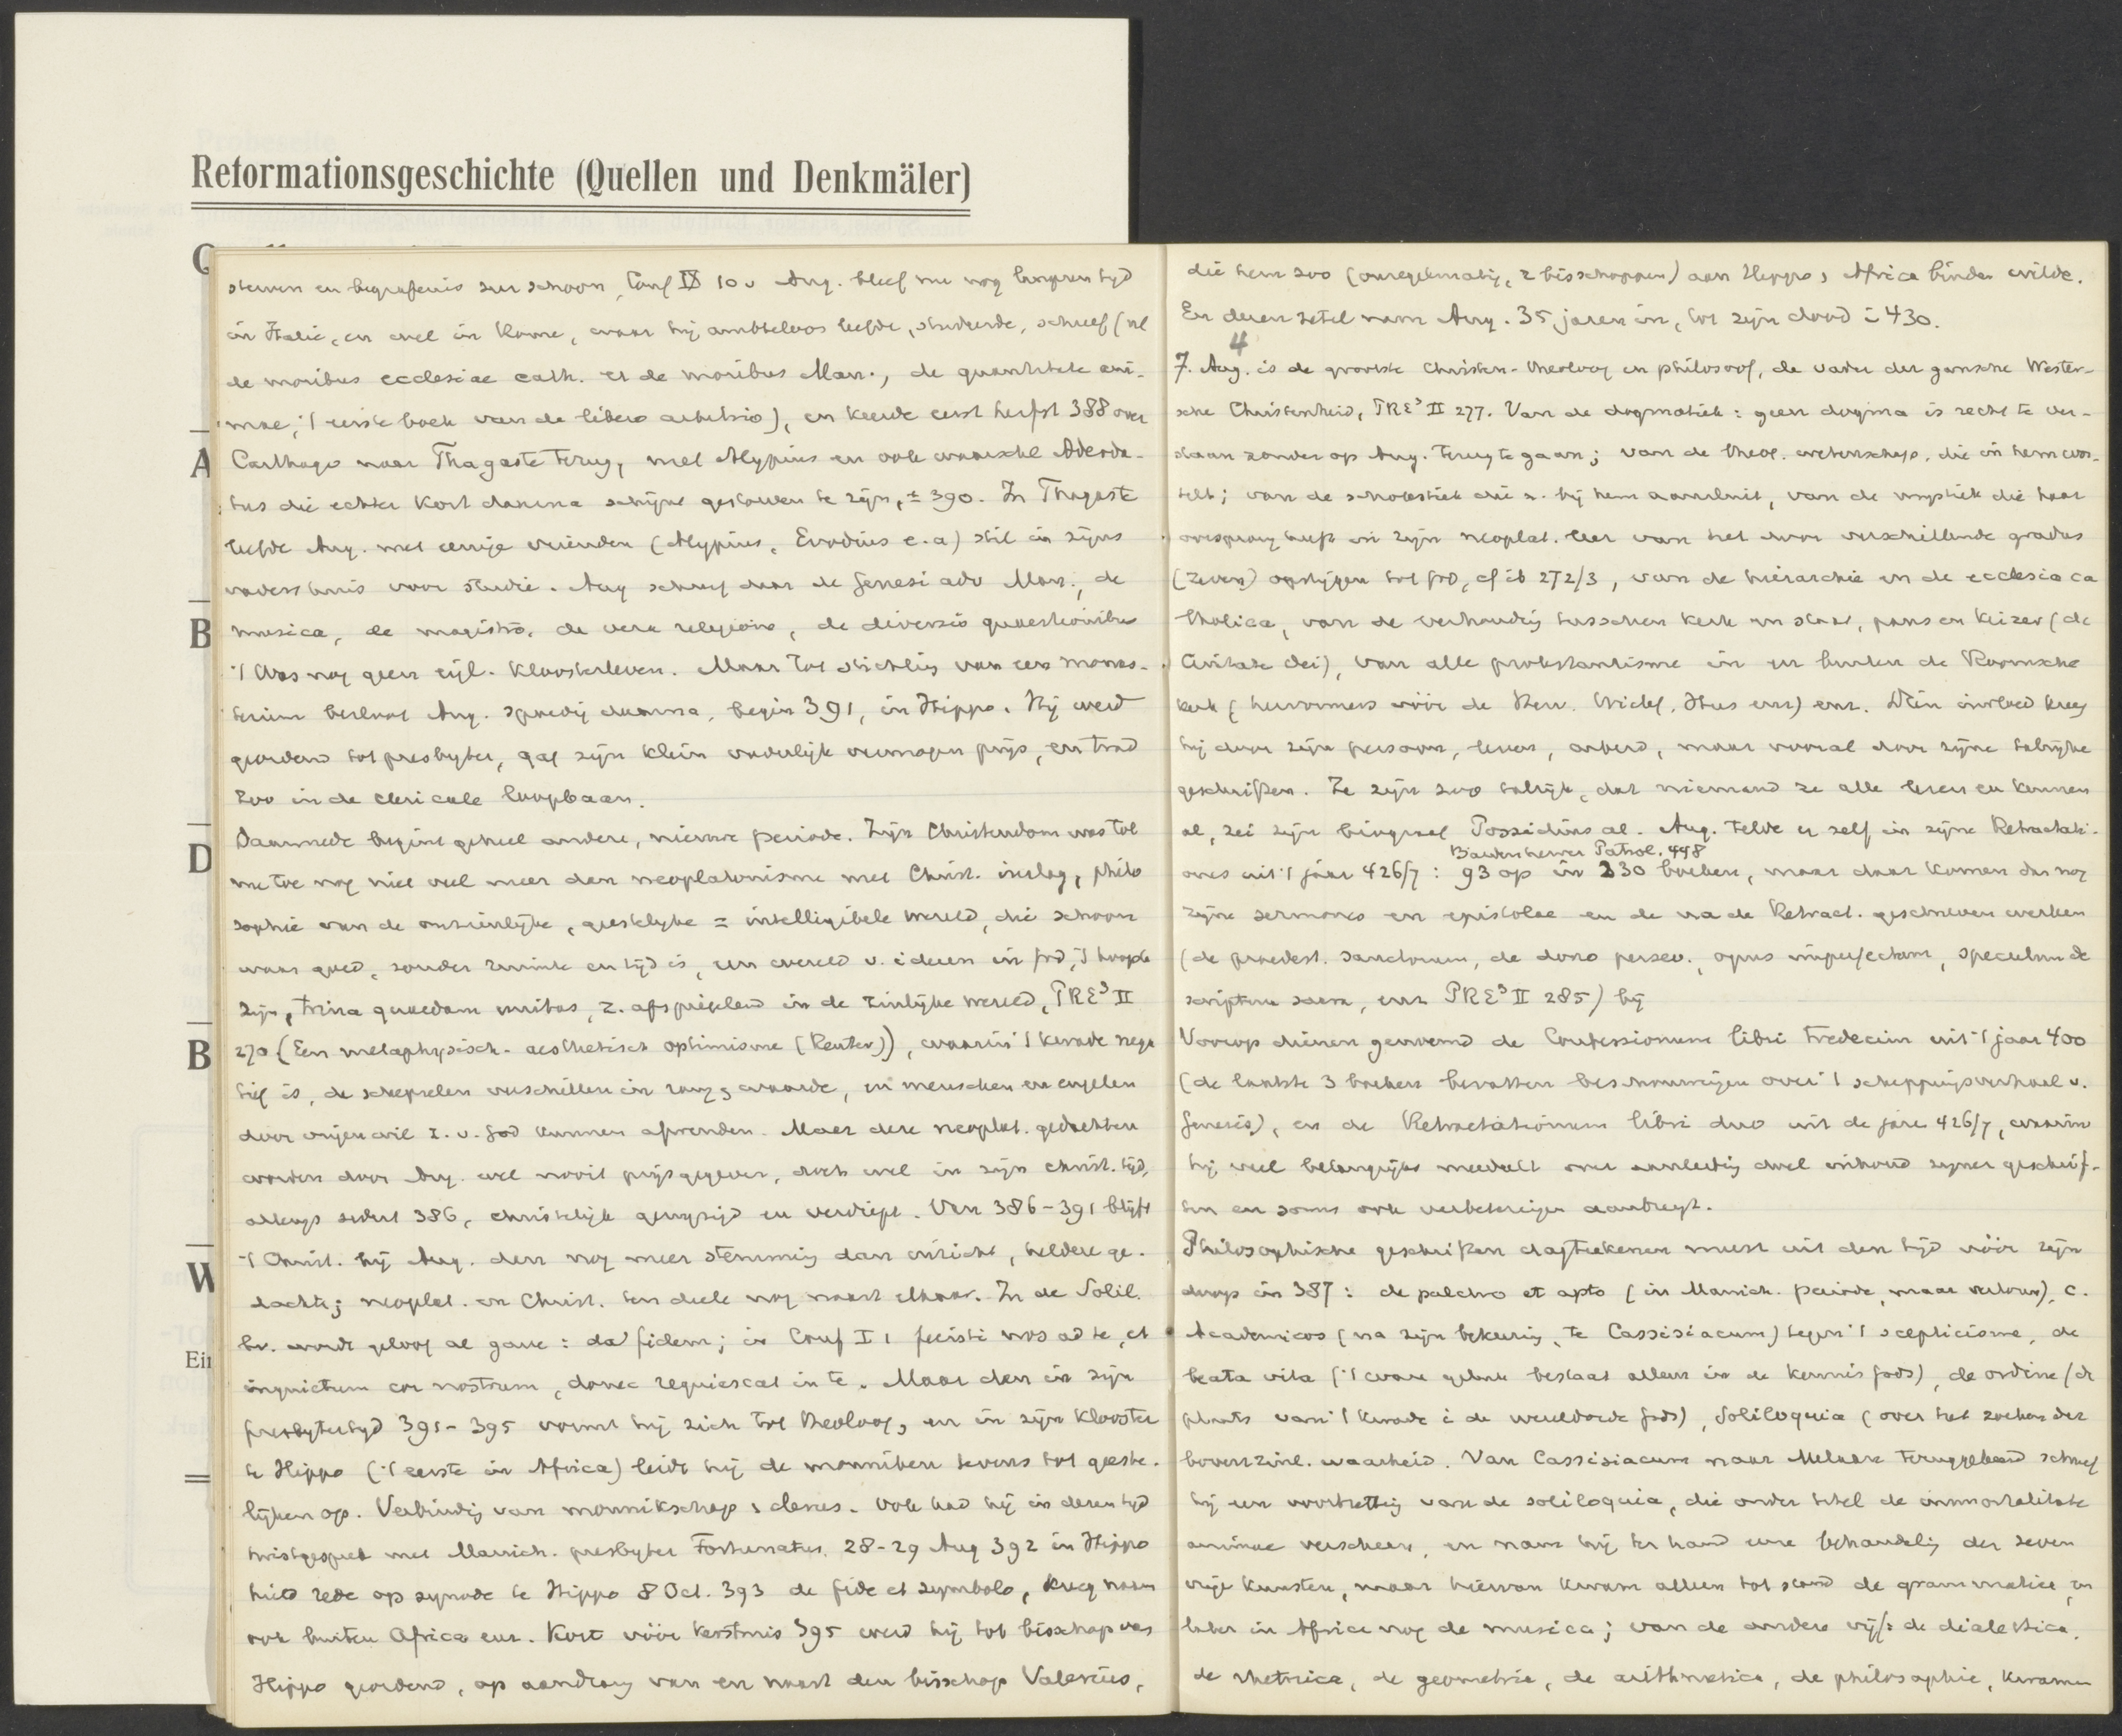 Reformationsgeschichte (Quellen und Denkmäler)
A
B
D
B
W
Ein
sterven en begrafenis zeer schoon, Conf IX 10 v Aug. bleef nu nog langeren tyd
in Italië, en wel in Rome, waar hij ambteloos leefde, studeerde, schreef (nl
de moribus ecclesiae cath. et de moribus Man., de quantitate ani-
mae, 't eerste boek van de libero arbitrio), en keerde eerst herfst 388 over
Carthago naar Thagaste terug, met Alypius en ook waarschl Adeoda-
tus die echter kort daarna schijnt gestorven te zijn, ± 390. In Thagaste
leefde Aug. met eenige vrienden (Alypius, Evodius e.a) stil in zijns
vaders huis voor studie. Aug schreef daar de Genesi adv Man., de
musica, de magistro, de vera religione, de diversis quaestionibus
't Was nog geen eijl. kloosterleven. Maar tot stichting van een monas-
terium besloot Aug. spoedig daarna, begin 391, in Hippo. Hij werd
geordend tot presbyter, gaf zijn klein vaderlijk vermogen prijs, en trad
zoo in de clericale loopbaan.
Daarmede begint geheel andere, nieuwe periode. Zijn Christendom was tot
nu toe nog niet veel meer dan neoplatonisme met Christ. inslag, philo
sophie van de onzienlijke, geestelyke = intelligibele wereld, die schoon
waar goed, zonder ruimte en tijd is, een wereld v. ideeen in God, 't hoogste
Zijn, trina quaedam unitas, z. afspiegelend in de zinlijke wereld, PRE³ II
270 (Een metaphysisch-aesthetisch optimisme (Reuter)), waarin 't kwade nega
tief is, de schepselen verschillen in rang & waarde, en menschen en engelen
door vrijen wil z. v. God kunnen afwenden. Maar deze neoplat. gedachten
worden door Aug. wel nooit prijsgegeven, doch wel in zijn christ. tijd,
al 386, christelijk gewijzigd en verdiept. Van 386-391 blijft
't Christ. bij Aug. den nog meer stemming dan inzicht, heldere ge-
dachte; neoplat. en Christ. ten deele nog naast elkaar. In de Solil.
bv. wordt geloof al gave: da fidem; in Conf I 1 fecisti nos ad te, et
inquietum cor nostrum, donec requiescat in te. Maar dan in zijn
presbytertyd 391-395 vormt hij zich tot theoloog, en in zijn klooster
te Hippo ('t eerste in Africa) leidt hij de monniken tevens tot geeste-
lijken op. Verbinding van monnikschap & clerus. Ook had hij in dezen tyd
twistgesprek met Manich. presbyter Fortunatus, 28-29 Aug 392 in Hippo
hield rede op synode te Hippo 8 Oct. 393 de fide et symbolo, kreeg naam
ook buiten Africa enz. Kort vóór Kerstmis 395 werd hij tot bisschop van
Hippo geordend, op aandrang van en naast den bisschop Valerius,
die hem zoo (onregelmatig, 2 bisschoppen) aan Hippo, Africa binden wilde.
En dezen zetel nam Aug. 35 jaren in, tot zijn dood i 430.
4
7. Aug. is de grootste Christen-theoloog en philosoof, de vader der gansche Wester-
sche Christenheid, PRE³ II 277. Van de dogmatiek: geen dogma is recht te ver-
staan zonder op Aug. terug te gaan; van de theol. wetenschap, die in hem wor-
telt; van de scholastiek die z. bij hem aansluit, van de mystiek die haar
oorsprong heeft in zijn neoplat. leer van het door verschillende gradus
(zeven) opstijgen tot God, cf ib 272/3, van de hierarchie en de ecclesia ca
tholica, van de verhouding tusschen kerk en staat, paus en keizer (de
Civitate Dei), van alle protestantisme in en buiten de Roomsche
kerk (hervormers vóór de Herv. Wiclef, Hus enz) enz. Dien invloed kreeg
hij door zijn persoon, leven, arbeid, maar vooral door zijne talrijke
geschriften. Ze zijn zoo talrijk, dat niemand ze alle lezen en kennen
al, zei zijn biograaf Possidius al. Aug. telde er zelf in zijne Retractati-
Bardenhewer Patrol. 448
ones uit 't jaar 426/7: 93 op in 230 boeken, maar daar komen dan nog
zijne sermones en epistolae en de na de Retract. geschreven werken
(de praedest. sanctorum, de dono persev., opus imperfectum, speculum de
scriptura sacra, enz PRE³ II 285) bij
Voorop dienen genoemd de Confessionum libri tredecim uit 't jaar 400
(de laatste 3 boeken bevatten beschouwingen over 't scheppingsverhaal v.
Genesis), en de Retractationum libri duo uit de jare 426/7, waarin
hij veel belangrijks meedeelt over aanleiding doel inhoud zyner geschrif-
ten en soms ook verbeteringen aanbrengt.
Philosophische geschriften dagteekenen meest uit den tijd vóór zijn
doop in 387: de pulchro et apto (in Manich. periode, maar verloren), c.
Academicos (na zijn bekeering, te Cassisiacum) tegen 't scepticisme, de
beata vita ('t ware geluk bestaat alleen in de kennis Gods), de ordine (de
plaats van 't kwade i de wereldorde Gods), Soliloquia (over het zoeken der
bovenzinl. waarheid. Van Cassisiacum naar Milaan teruggekeerd schreef
hij een voortzetting van de soliloquia, die onder titel de immortalitate
animae verscheen, en nam hij ter hand eene behandeling der zeven
vrije kunsten, maar hiervan kwam alleen tot stand de grammatica, en
later in Africa nog de musica; van de andere vijf: de dialectica,
de rhetorica, de geometria, de arithmetica, de philosophie, kwamen